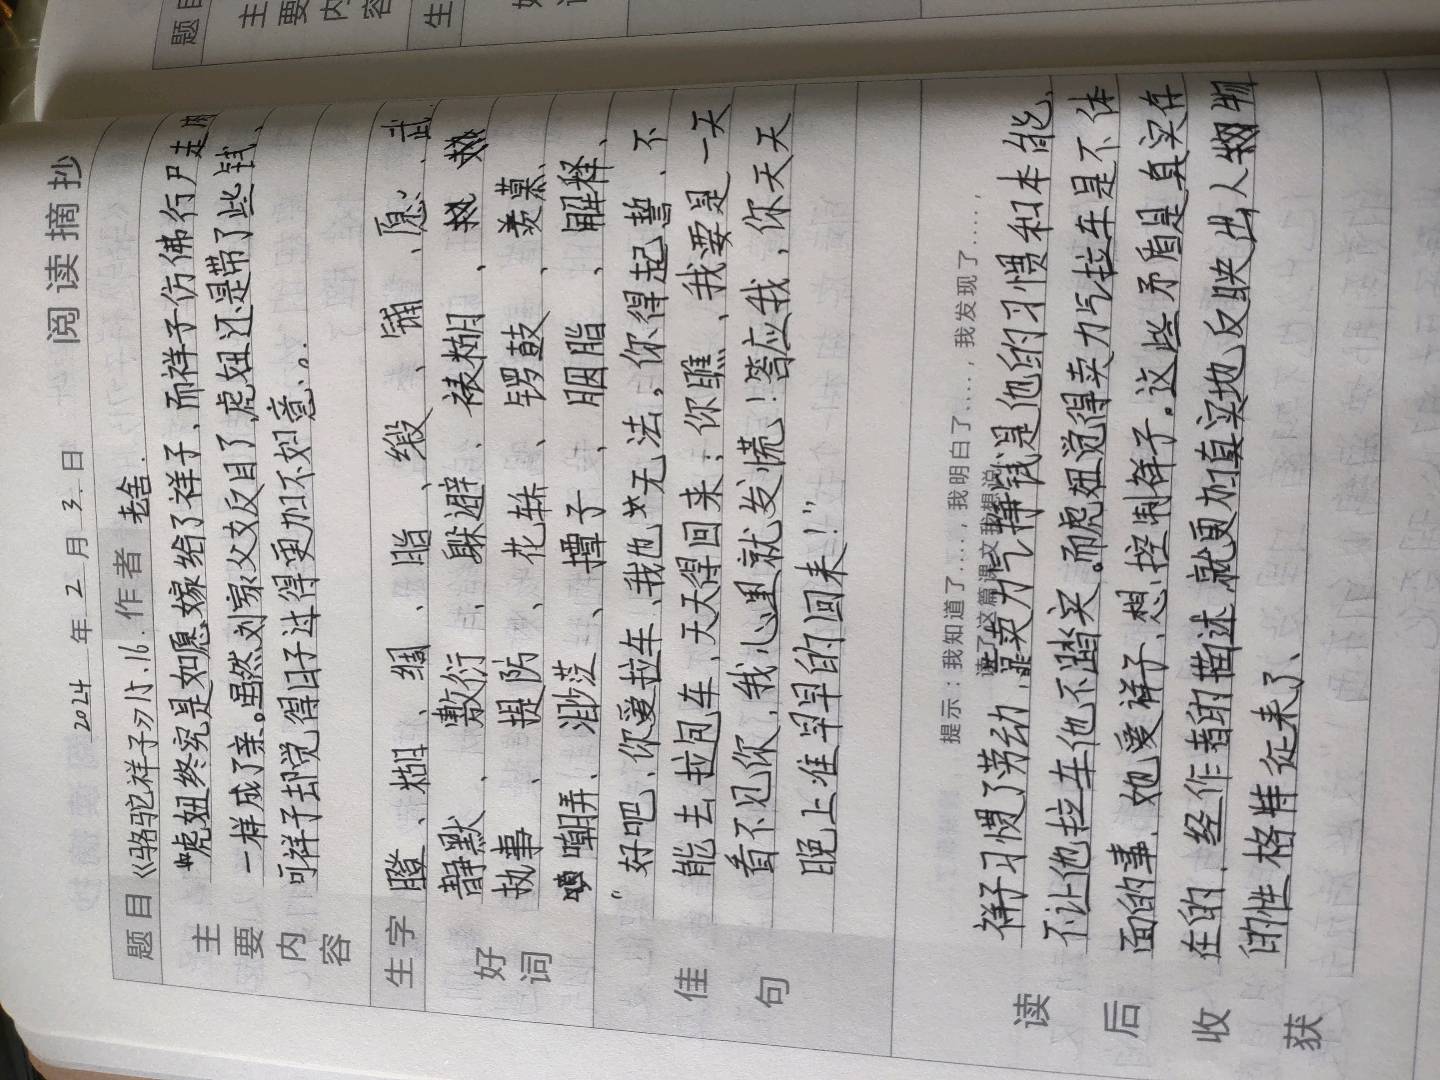 阅读摘抄
2024年2月3日
题目《骆驼祥子》15、16. 作者 老舍.
主要内容
虎妞终究是如愿嫁给了祥子、而祥子仿佛行尸走肉
一样成了亲。虽然刘家父女反目了,虎妞还是带了些钱、
可祥子却觉得日子过得更加不如意、。
生字
瞪、糊、绸、脂、缎、铺、愿、武
好词
静默、敷衍、躲避、裱糊、热
执事、提防、花轿、锣鼓、羡慕、
嘲弄、渺茫、掸子、胭脂、解释、
佳句
“好吧、你爱拉车、我也无法。你得起誓、不
能去拉包车、天天得回来;你瞧、我要是一天
看不见你,我心里就发慌!答应我,你天天
晚上准早早的回来!”
提示:我知道了……,我明白了……,我发现了……,
读了这篇课文我想说
读后收获
祥子习惯了劳动,卖力气挣钱是他的习惯和本能、
不让他拉车他不踏实。而虎妞觉得卖力气拉车是不体
面的事、她爱祥子、想控制祥子。这些矛盾是真实存
在的、经作者的描述,就更加真实地反映出人物
的性格特征来了、